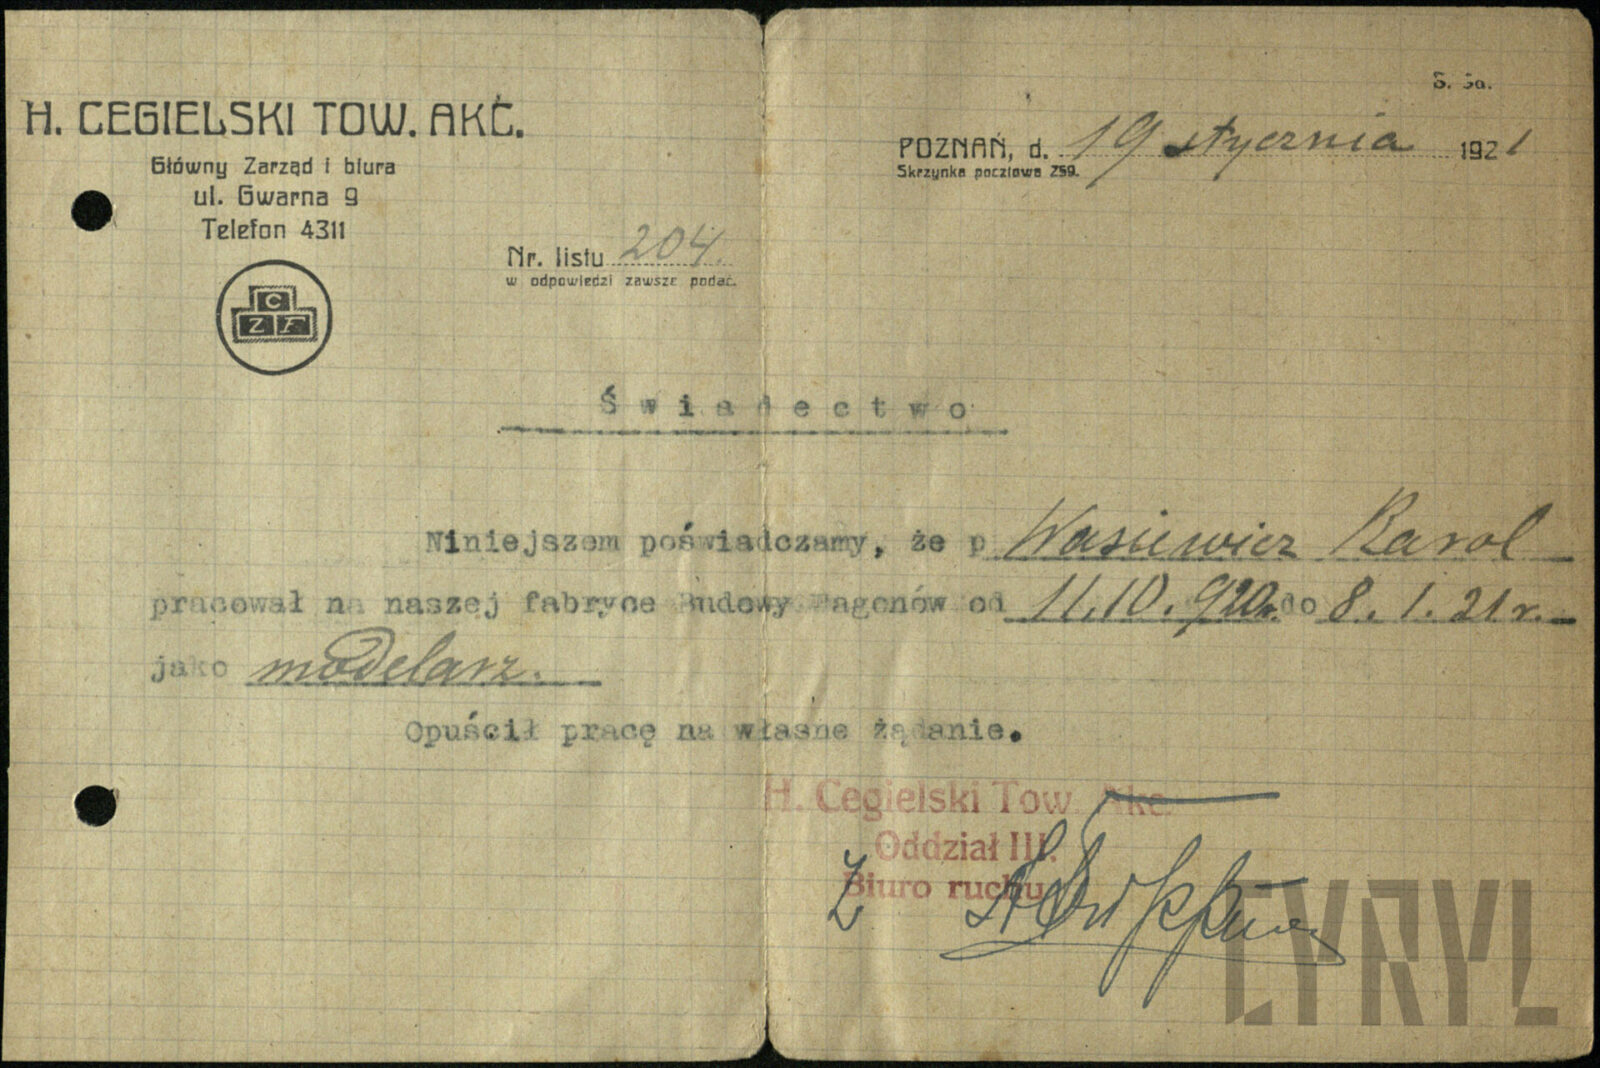 H. CEGIELSKI TOW. AKC.
Główny Zarząd i biura
ul. Gwarna 9
Telefon 4311
C
Z F
Nr. listu 204.
w odpowiedzi zawsze podać.
POZNAŃ, d. 19 stycznia 1921
Skrzynka pocztowa 259.
Świadectwo
Niniejszem poświadczamy, że p Wasiewicz Karol
pracował na naszej fabryce Budowy Wagonów od 11.10.920r. do 8.1.21r.
jako modelarz.
Opuścił pracę na własne żądanie.
H. Cegielski Tow. Akc.
Oddział III.
Biuro ruchu
CYRYL